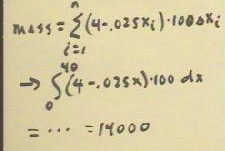 n
mass = Σ (4-.025xᵢ)·100Δxᵢ
i=1
40
→ ∫ (4-.025x)·100 dx
0
= ... = 14000